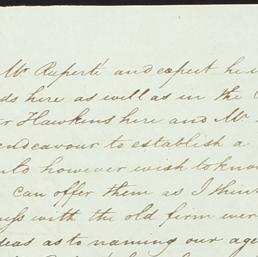 Mr Ruperti and expect he
ds here as well as in the
Hawkins here and Mr
endeavour to establish a
however wish to know
can offer them as I think
with the old firm wer
eas as to naming our age